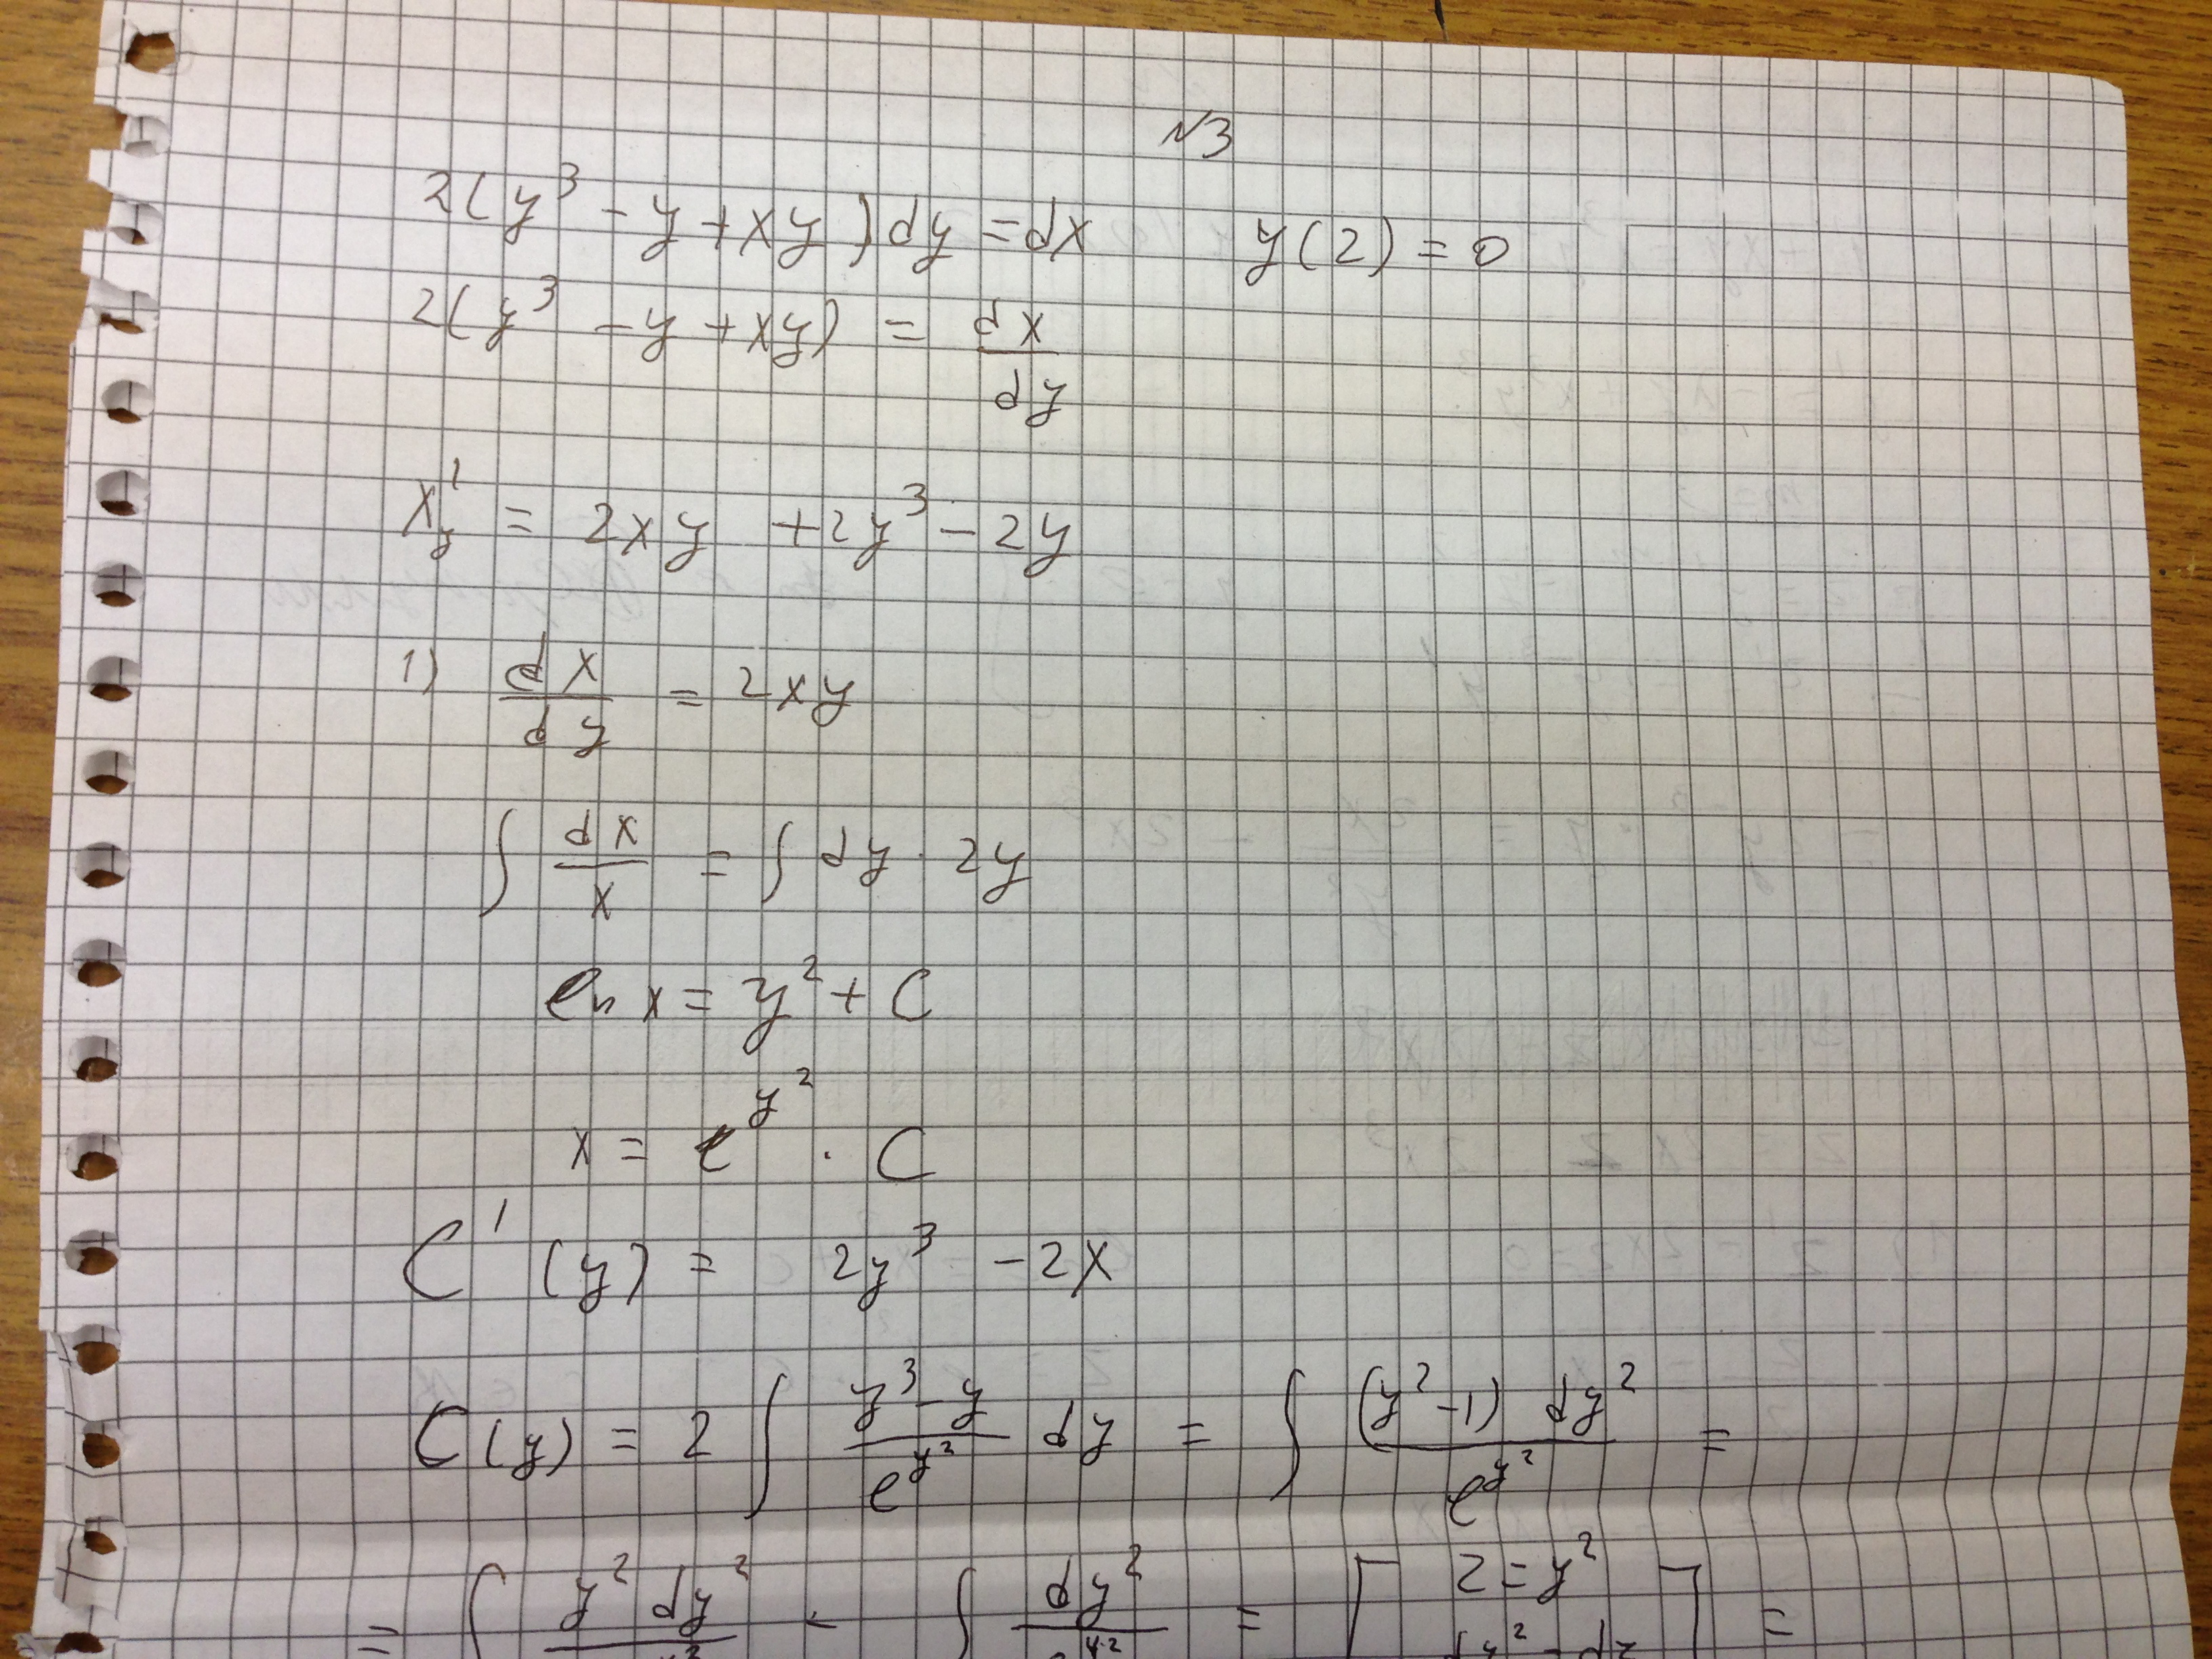 №3
2(y³ - y + xy) dy = dx    y(2) = 0
2(y³ - y + xy) = dx/dy
x'_y = 2xy + 2y³ - 2y
1) dx/dy = 2xy
∫ dx/x = ∫ dy · 2y
ln x = y² + C
x = e^(y²) · C
C'(y) = 2y³ - 2x
C(y) = 2 ∫ (y³ - y)/e^(y²) dy = ∫ (y² - 1) dy² / e^(y²) =
= ∫ y² dy² / e^(y²) - ∫ dy² / e^(y²) = [ z = y²
dy² = dz ] =